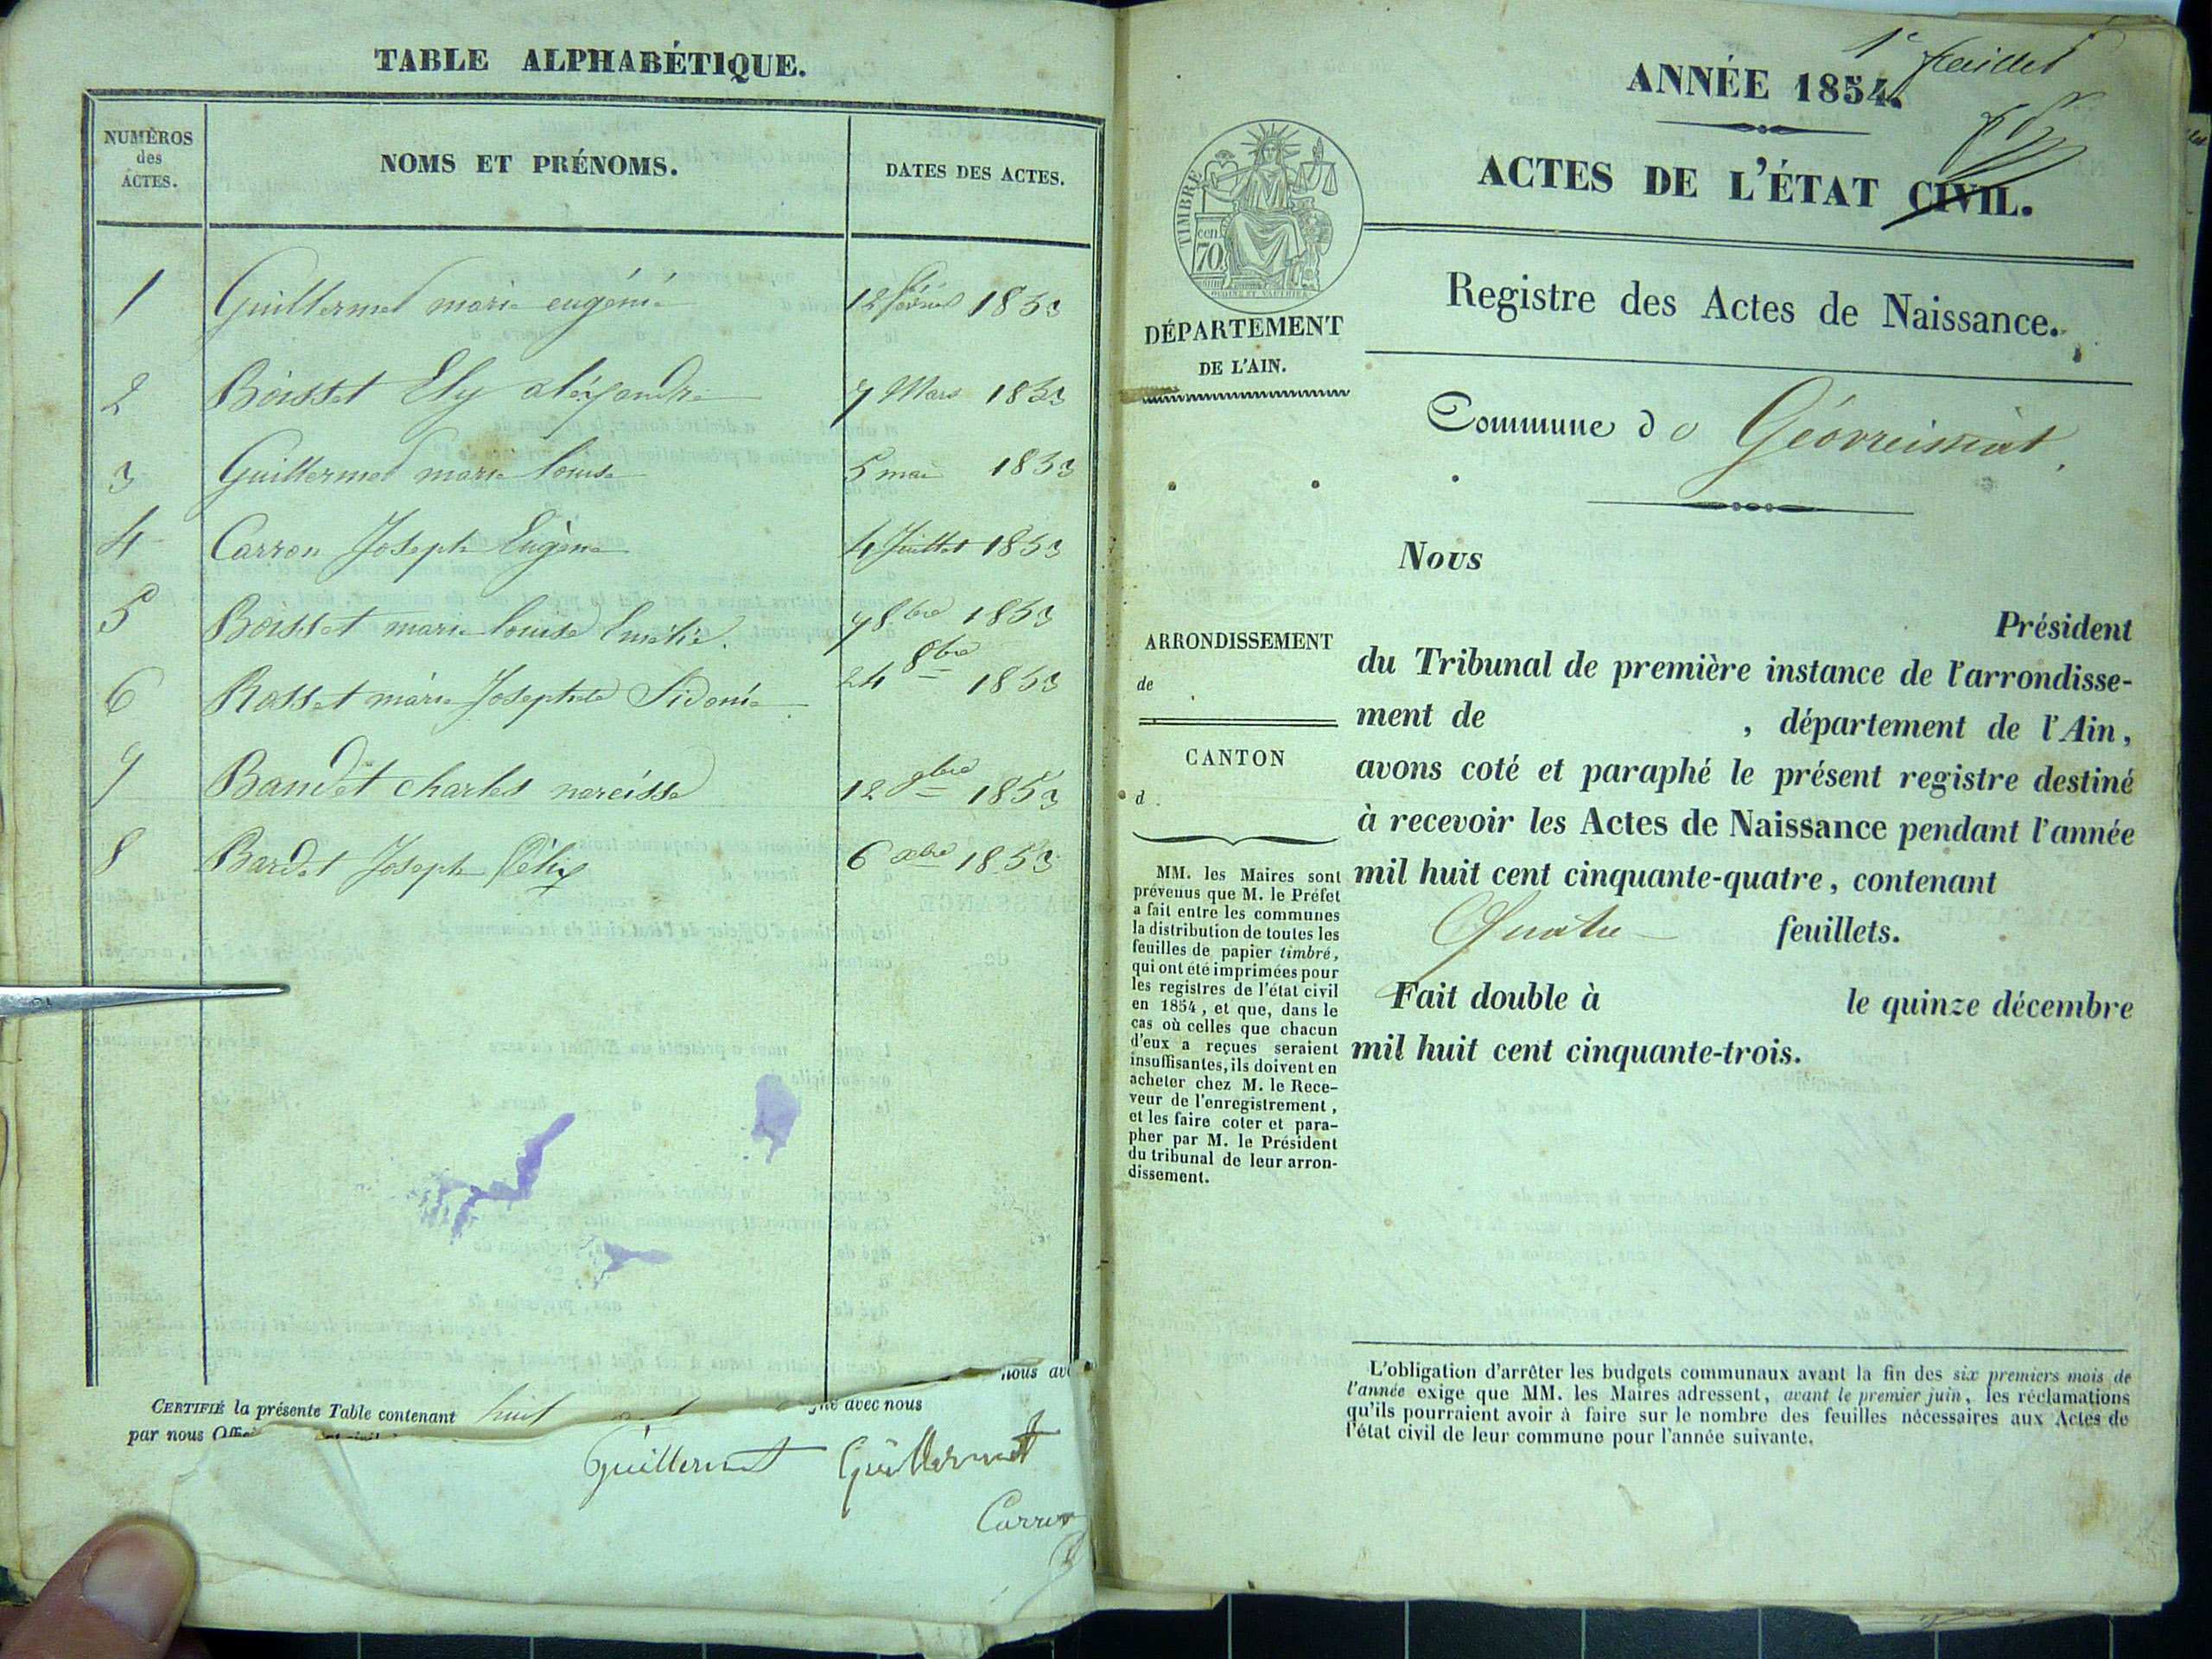 TABLE ALPHABÉTIQUE.
NUMÉROS
des
ACTES.
NOMS ET PRÉNOMS.
DATES DES ACTES.
1 Guillermet marie eugénie 12 février 1853
2 Boisset Ely aléxandre 7 Mars 1853
3 Guillermet marie louise 5 mai 1853
4 Carron Joseph Eugène 4 Juillet 1853
5 Boisset marie louise Emélie. 7 8bre 1853
6 Rosset marie Josephte Sidonie 24 8bre 1853
7 Baudet charles narcisse 12 9bre 1853
8 Bardet Joseph Félix 6 xbre 1853
nous av
CERTIFIÉ la présente Table contenant huit
avec nous
par nous
Guillermet Guillermet
Carron
1e feuillet
ANNÉE 1854.
ACTES DE L'ÉTAT CIVIL.
TIMBRE
cen.
70
Registre des Actes de Naissance.
DÉPARTEMENT
DE L'AIN.
Commune de Géovreissiat.
Nous
Président
ARRONDISSEMENT
de
CANTON
d
du Tribunal de première instance de l'arrondisse-
ment de , département de l'Ain,
avons coté et paraphé le présent registre destiné
à recevoir les Actes de Naissance pendant l'année
mil huit cent cinquante-quatre, contenant
Quatre feuillets.
Fait double à le quinze décembre
mil huit cent cinquante-trois.
MM. les Maires sont
prévenus que M. le Préfet
a fait entre les communes
la distribution de toutes les
feuilles de papier timbré,
qui ont été imprimées pour
les registres de l'état civil
en 1854, et que, dans le
cas où celles que chacun
d'eux a reçues seraient
insuffisantes, ils doivent en
acheter chez M. le Rece-
veur de l'enregistrement,
et les faire coter et para-
pher par M. le Président
du tribunal de leur arron-
dissement.
L'obligation d'arrêter les budgets communaux avant la fin des six premiers mois de
l'année exige que MM. les Maires adressent, avant le premier juin, les réclamations
qu'ils pourraient avoir à faire sur le nombre des feuilles nécessaires aux Actes de
l'état civil de leur commune pour l'année suivante.